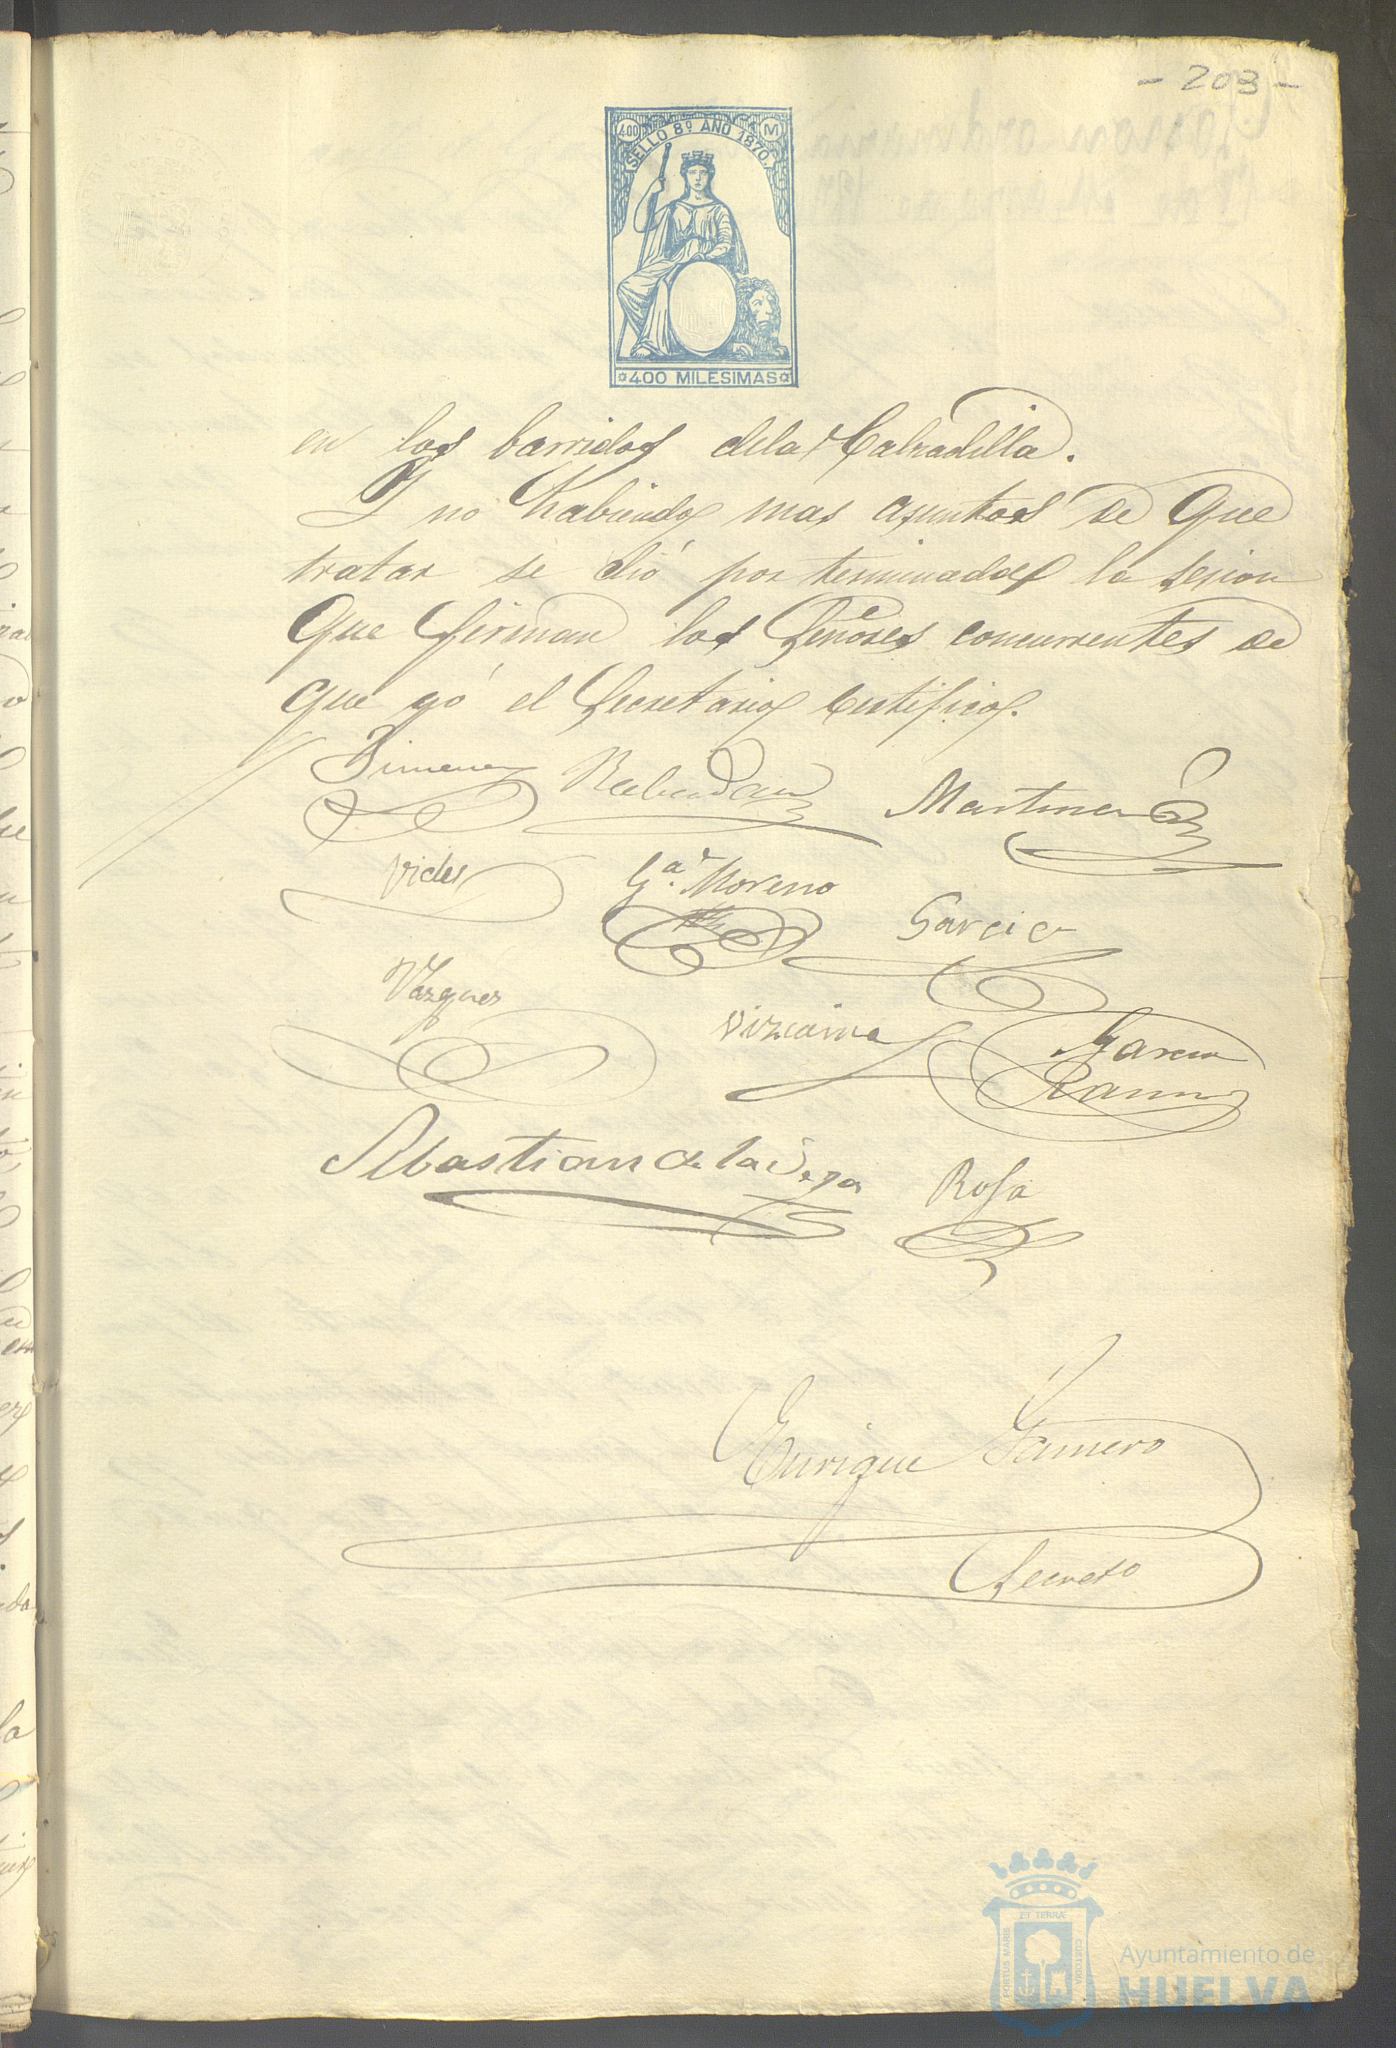 - 203 -
400 M
SELLO 8º AÑO 1870.
400 MILESIMAS
en los barridos dela Calzadilla.
Y no habiendo mas asuntos de que
tratar se dió por terminada la sesion
que firman los Señores concurrentes de
que yó el Secretario Certifico.
Jimenez Rebendan Martinez
Vides Gª. Moreno Garcia
Vazquez Vizcaino Garcia
Ramos
Sebastian de la Vega Rosa
Enrique Gamero
Secreto
PORTUS MARIS ET TERRÆ CUSTODIA
Ayuntamiento de
HUELVA